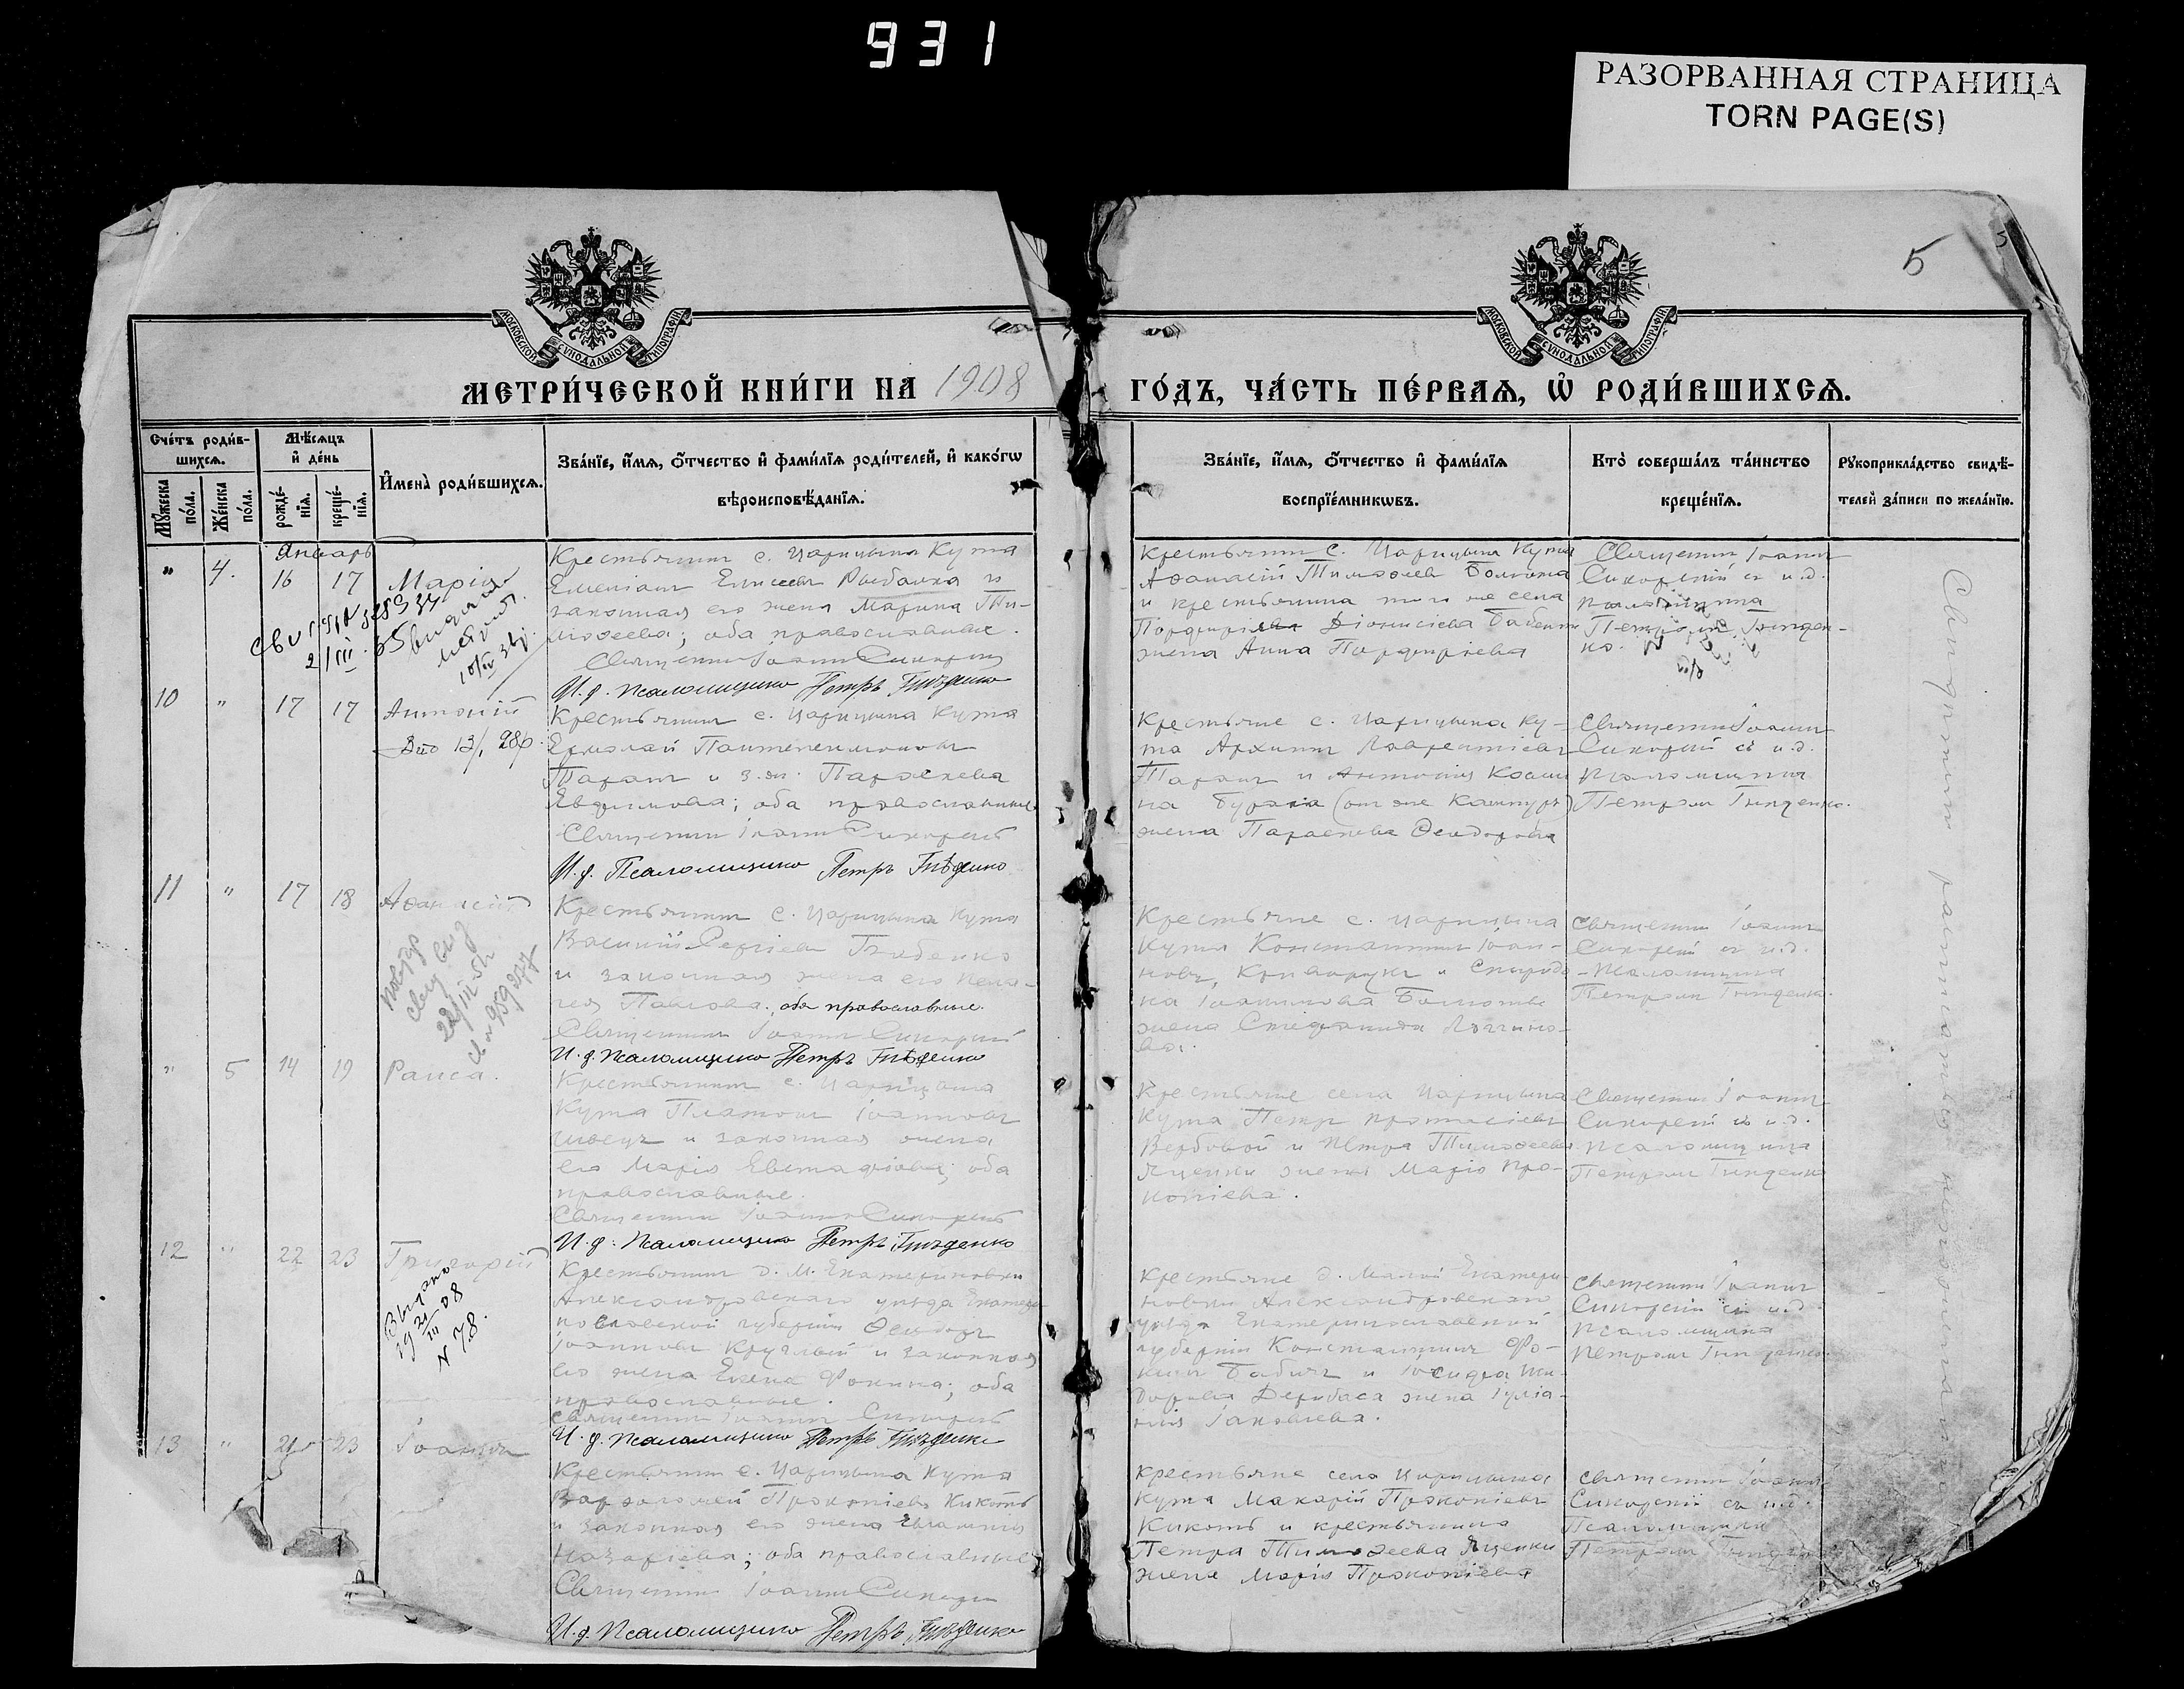 931
РАЗОРВАННАЯ СТРАНИЦА
TORN PAGE(S)
5
5
МОСКОВСКОЙ СУНОДАЛЬНОЙ ТИПОГРАФІИ
МОСКОВСКОЙ СУНОДАЛЬНОЙ ТИПОГРАФІИ
МЕТРИ́ЧЕСКОЙ КНИ́ГИ НА 1908 ГО́ДЪ, ЧА́СТЬ ПЕ́РВАѦ, Ѡ҆ РОДИ́ВШИХСѦ.
Сче́тъ роди́в-
шихсѧ.
Мꙋ́жеска по́ла.
Же́нска по́ла.
Мѣ́сѧцъ
и҆ де́нь
рожде́-
нїѧ.
креще́-
нїѧ.
И҆мена̀ роди́вшихсѧ.
Зва́нїе, и҆́мѧ, ѻ҆́тчество и҆ фами́лїѧ роди́телей, и҆ како́гѡ
вѣроисповѣ́данїѧ.
Зва́нїе, и҆́мѧ, ѻ҆́тчество и҆ фами́лїѧ
воспрїе́мникѡвъ.
Кто̀ соверша́лъ та́инство
креще́нїѧ.
Рꙋкоприкла́дство свидѣ́-
телей за́писи по жела́нїю.
Январь
" 4. 16 17 Марія
Крестьянинъ с. Царицына Кута
Емеліанъ Елисеевъ Рыбалка и
законная его жена Марина Ти-
моѳеева; оба православные.
Священникъ Іоаннъ Сикорскій
И. д. Псаломщика Петръ Гнѣденко
Крестьянинъ с. Царицына Кута
Аѳанасій Тимоѳеевъ
и крестьянина того же села
Порфирія Діонисіева
жена Анна Порфиріева
Священникъ Іоаннъ
Сикорскій съ и.д.
псаломщика
Петромъ Гнѣден-
ко.
10 " 17 17 Антоній
Крестьянинъ с. Царицына Кута
Ермолай Пантелеимоновъ
Таранъ и з. ж. Параскева
Евфимова; оба православные
Священникъ Іоаннъ Сикорскій
И. д. Псаломщика Петръ Гнѣденко
Крестьяне с. Царицына Ку-
та Архипъ Лаврентіевъ
Таранъ и Антонія
жена Параскева Ѳеодорова
Священникъ Іоаннъ
Сикорскій съ и.д.
псаломщика
Петромъ Гнѣденко.
11 " 17 18 Аѳанасій
Крестьянинъ с. Царицына Кута
Василій Сергіевъ
и законная жена его Пела-
гея Павлова. оба православные.
Священникъ Іоаннъ Сикорскій
И. д. Псаломщика Петръ Гнѣденко
Крестьяне с. Царицына
Кута Константинъ Іоан-
новъ Криворукъ и
жена Стефанида
Священникъ Іоаннъ
Сикорскій съ и.д.
Псаломщика
Петромъ Гнѣденко.
" 5 14 19 Раиса.
Крестьянинъ с. Царицына
Кута Платонъ Іоанновъ
Швецъ и законная жена
его Марія Евстафіева; оба
православные.
Священникъ Іоаннъ Сикорскій
И. д. Псаломщика Петръ Гнѣденко
Крестьяне села Царицына
Кута Петръ Протасіевъ
Вербовой и Петра Тимоѳеева
Яценки жена Марія Про-
копіева.
Священникъ Іоаннъ
Сикорскій съ и.д.
псаломщика
Петромъ Гнѣденко
12 " 22 23 Григорій
Крестьянинъ д. М. Екатериновки
Александровскаго уѣзда Екатери-
нославской губерніи Ѳеодоръ
Іоанновъ Круглый и законная
его жена Елена Фокина; оба
православные.
Священникъ Іоаннъ Сикорскій
И. д. Псаломщика Петръ Гнѣденко
Крестьяне д. Малой Екатери-
новки Александровскаго
уѣзда Екатеринославской
губерніи Константинъ Фо-
кинъ Бабичъ и Іосифа Ѳи-
Дерибаса жена Іуліа-
нія Іаковлева.
Священникъ Іоаннъ
Сикорскій съ и.д.
псаломщика
Петромъ Гнѣденко.
13 " 23 Іоаннъ
Крестьянинъ с. Царицына Кута
Варѳоломей Прокопіевъ Кикоть
и законная его жена Евлампія
Назаріева; оба православные
Священникъ Іоаннъ Сикорскій
И. д. Псаломщика Петръ Гнѣденко
Крестьяне села Царицына
Кута Макарій Прокопіевъ
Кикоть и крестьянина
Петра Тимоѳеева Яценки
жена Марія Прокопіева
Священникъ Іоаннъ
Сикорскій съ и.д.
Псаломщика
Петромъ